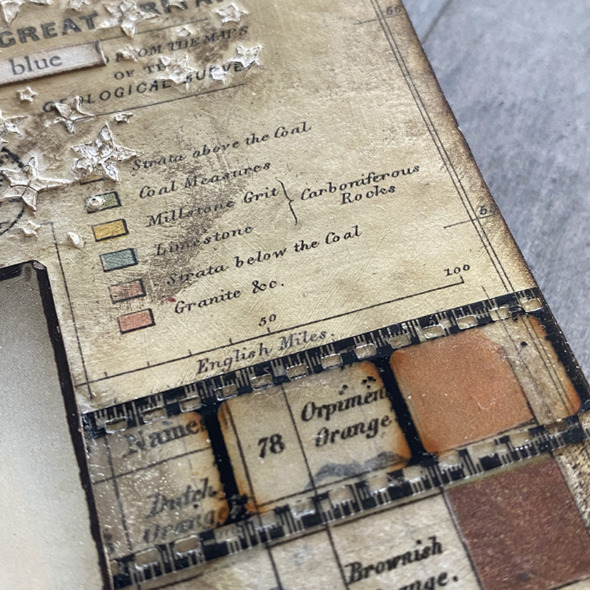 GREAT
blue
FROM THE MAPS
OF THE
GEOLOGICAL SURVEY
Strata above the Coal
Coal Measures
Millstone Grit
Carboniferous
Rocks
Limestone
Strata below the Coal
Granite &c.
50
100
English Miles.
Names
78
Orpiment
Orange
Dutch
Orange
Brownish